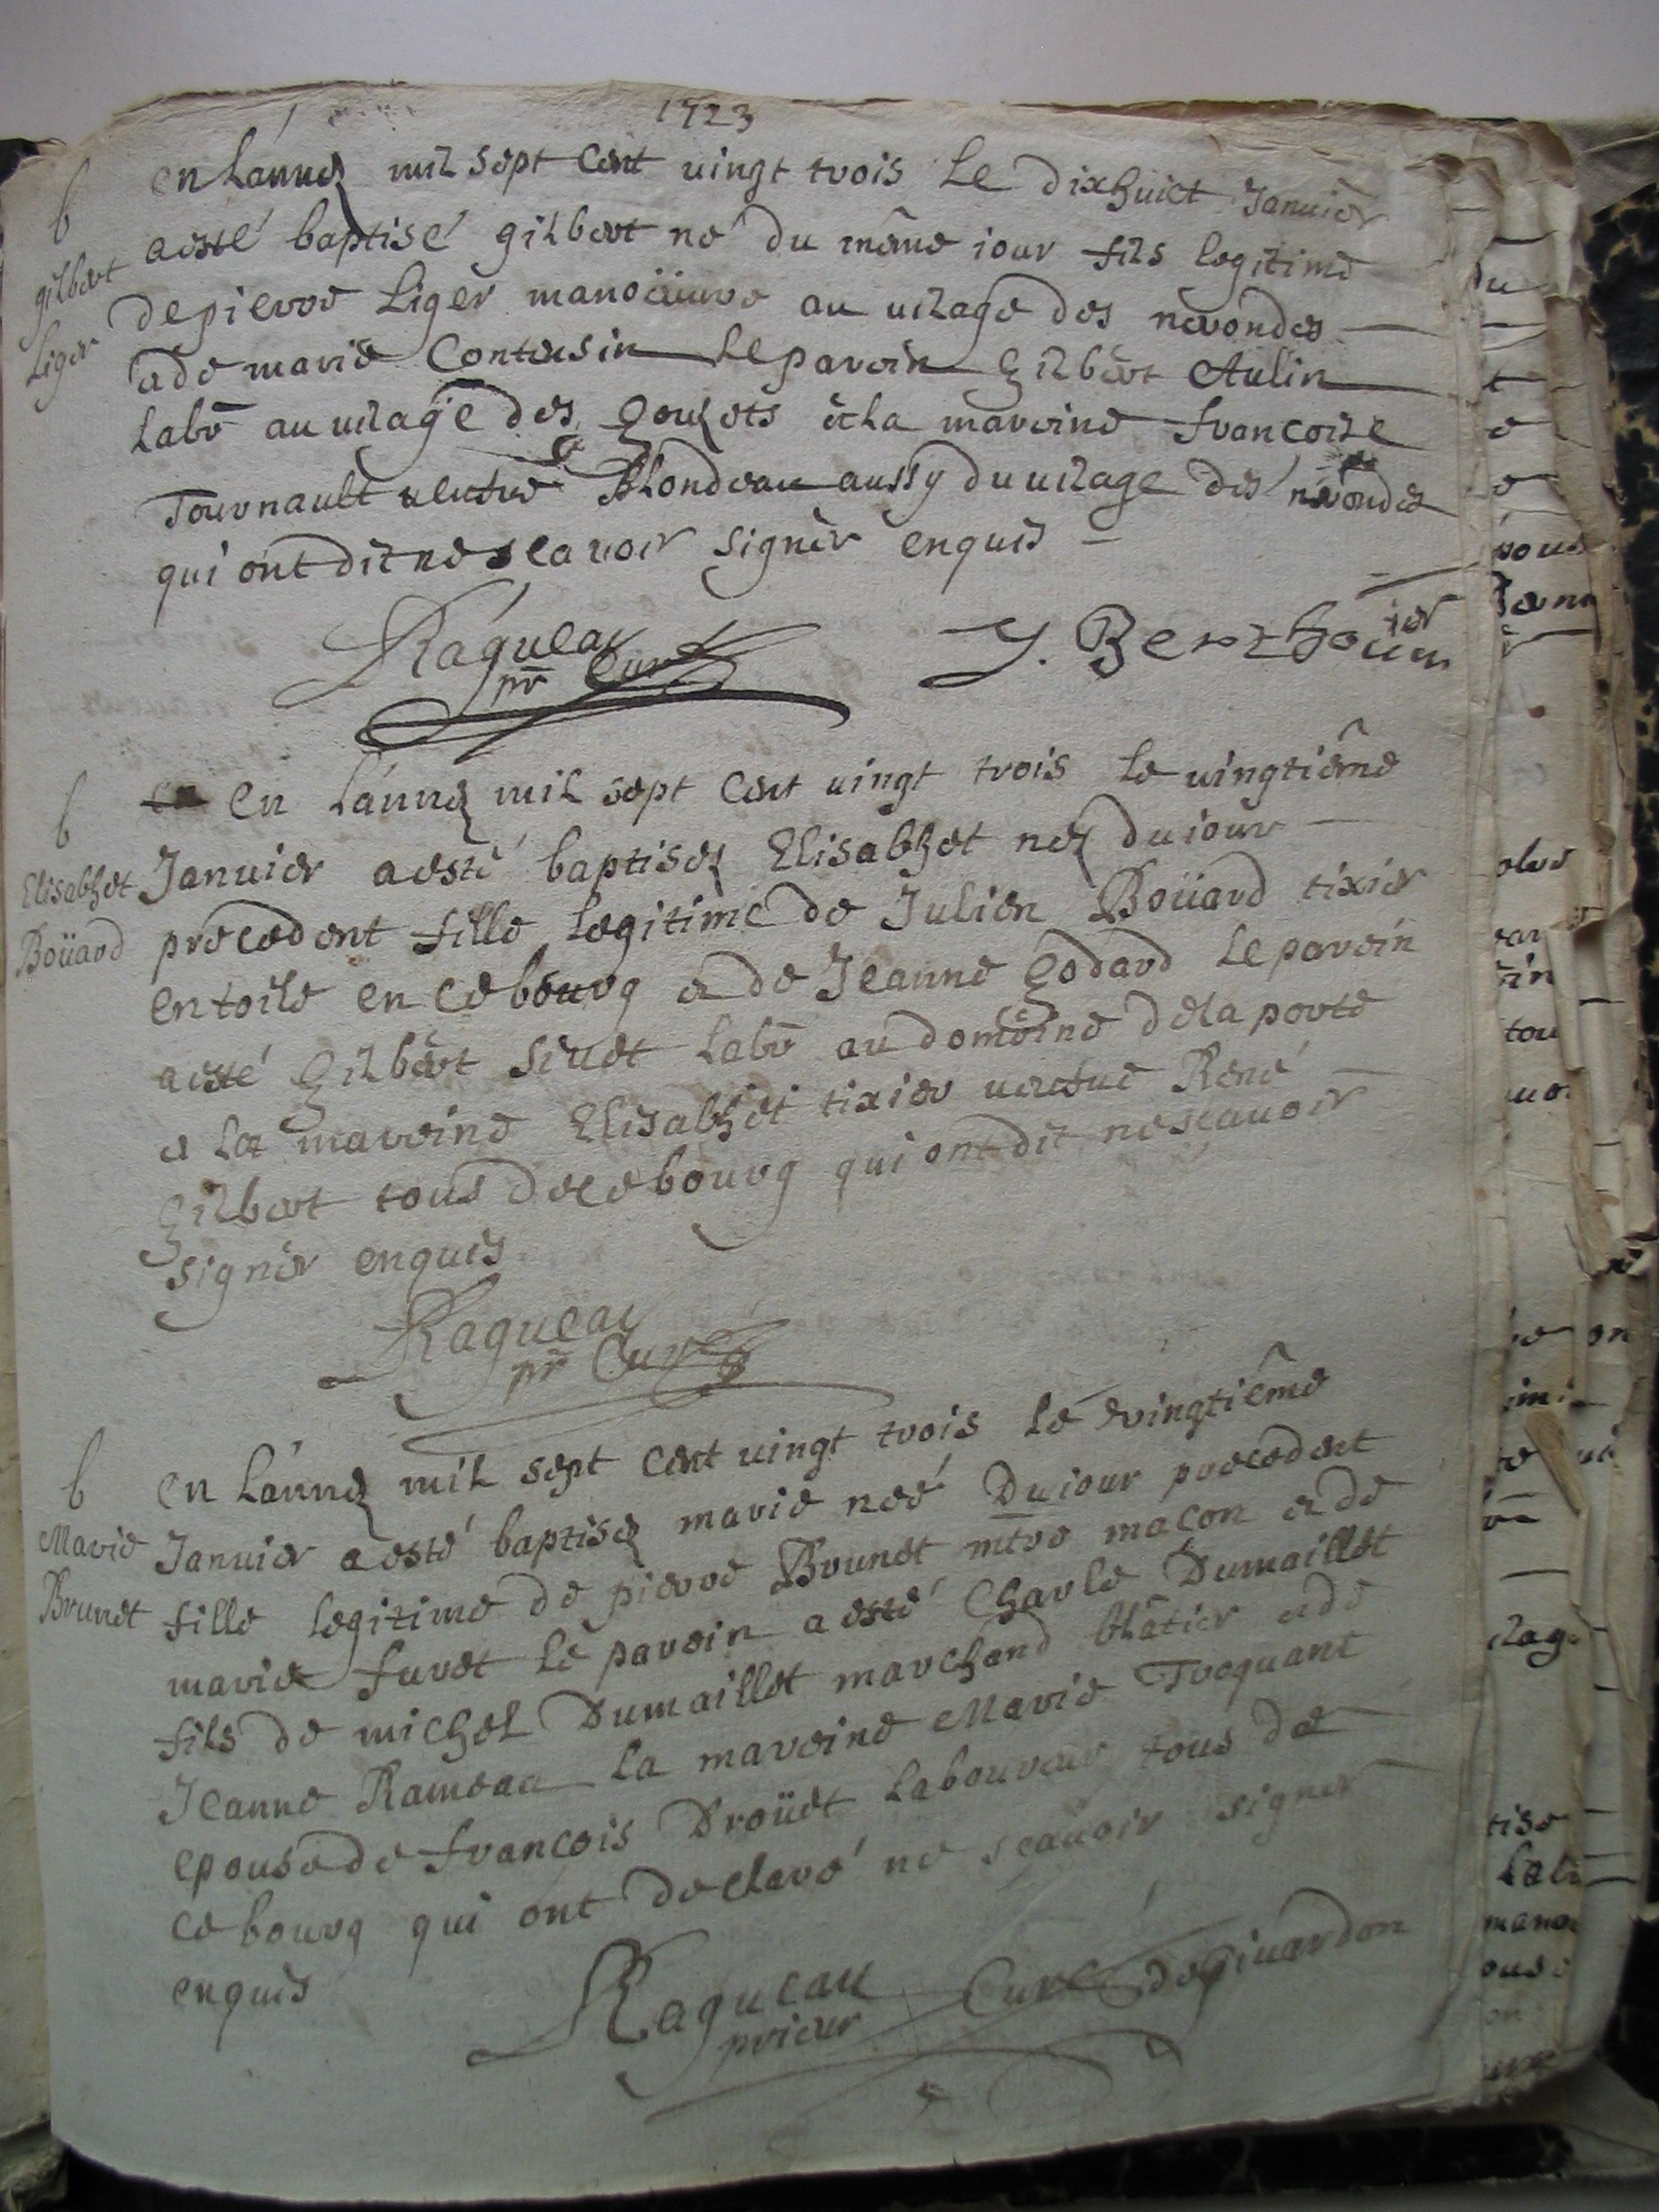 1723
b
gilbert
Liger
en Lánnéé mil sept Cent uingt trois Le dixhuict Januier
aesté baptisé gilbert né du même iour fils legitime
de pierre Liger manoëuure au uilage des nerondes
& de marie Contersin Le parein Gilbert Aulin
Labr̄ au uilage des Gouzets & La mareine francoise
Tournault ueufue Blondeau aussy du uilage des nerondes
qui ont dit ne scauoir signer enquis
Ragueau
pr̄ Curé
b
Elisabhet
Boüard
en en Lánnéé mil sept Cent uingt trois Le uingtiême
Januier aesté baptiséé Elisabhet néé du iour
precedent fille Legitime de Julien Boüard tixier
en toile en ce bourg & de Jeanne Godard Le parein
aesté Gilbert Siuet Labr̄ au domeine de la porte
& La mareine Elisabhet tixier ueufue René
Gilbert tous de ce bourg qui ont dit ne scauoir
signer enquis
Ragueau
pr̄ Curé
b
Marie
Brunet
en Lánnéé mil sept Cent uingt trois Le uingtiême
Januier aesté baptiséé marie néé Du iour precedent
fille Legitime de pierre Brunet mtre macon & de
marie furet Le parein aesté Charle Dumaillet
fils de michel Dumaillet marchand blâtier & de
Jeanne Rameau La mareine Marie Troquant
epouse de francois Droüet Laboureur tous de
ce bourg qui ont declaré ne scauoir signer
enquis
Ragueau
prieur Curé de giuardon